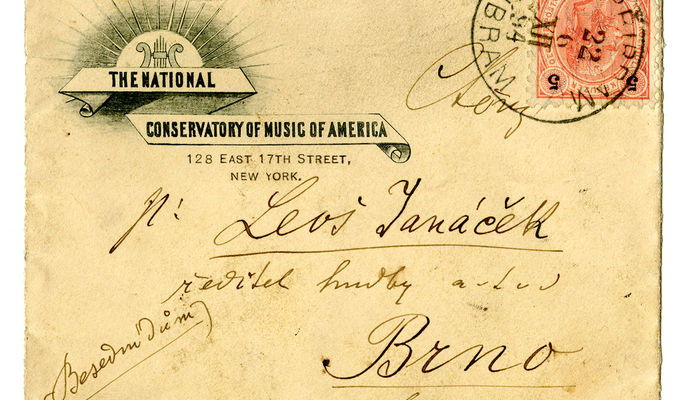 THE NATIONAL
CONSERVATORY OF MUSIC OF AMERICA
128 EAST 17TH STREET,
NEW YORK.
PŘIBRAM
22
6
XII
94
5 5
Leoš Janáček
ředitel hudby a t d
Brno
Besední dům